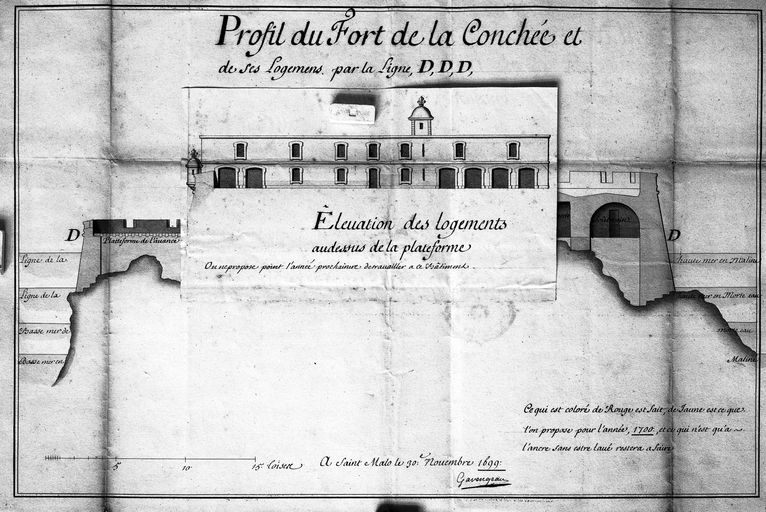 Profil du Fort de la Conchée et
de ses Logemens. par la Ligne, D, D, D,
Èleuation des logements
audessus de la plateforme
On ne propose point l'année prochaine de trauailler a ce Bâtiment.
D
Plateforme de l'auancé
Ligne de la
Ligne de la
Basse mer de
Basse mer en
D
haute mer en Maline
haute mer en Morte eau
morte eau
Maline
Ce qui est coloré de Rouge est fait, de Jaune est ce que
l'on propose pour l'année, 1700. et ce qui n'est qu'a
l'ancre sans estre laué restera a faire
5
10
15 toises
A Saint Malo le 30.e Nouembre 1699.
Garengeau